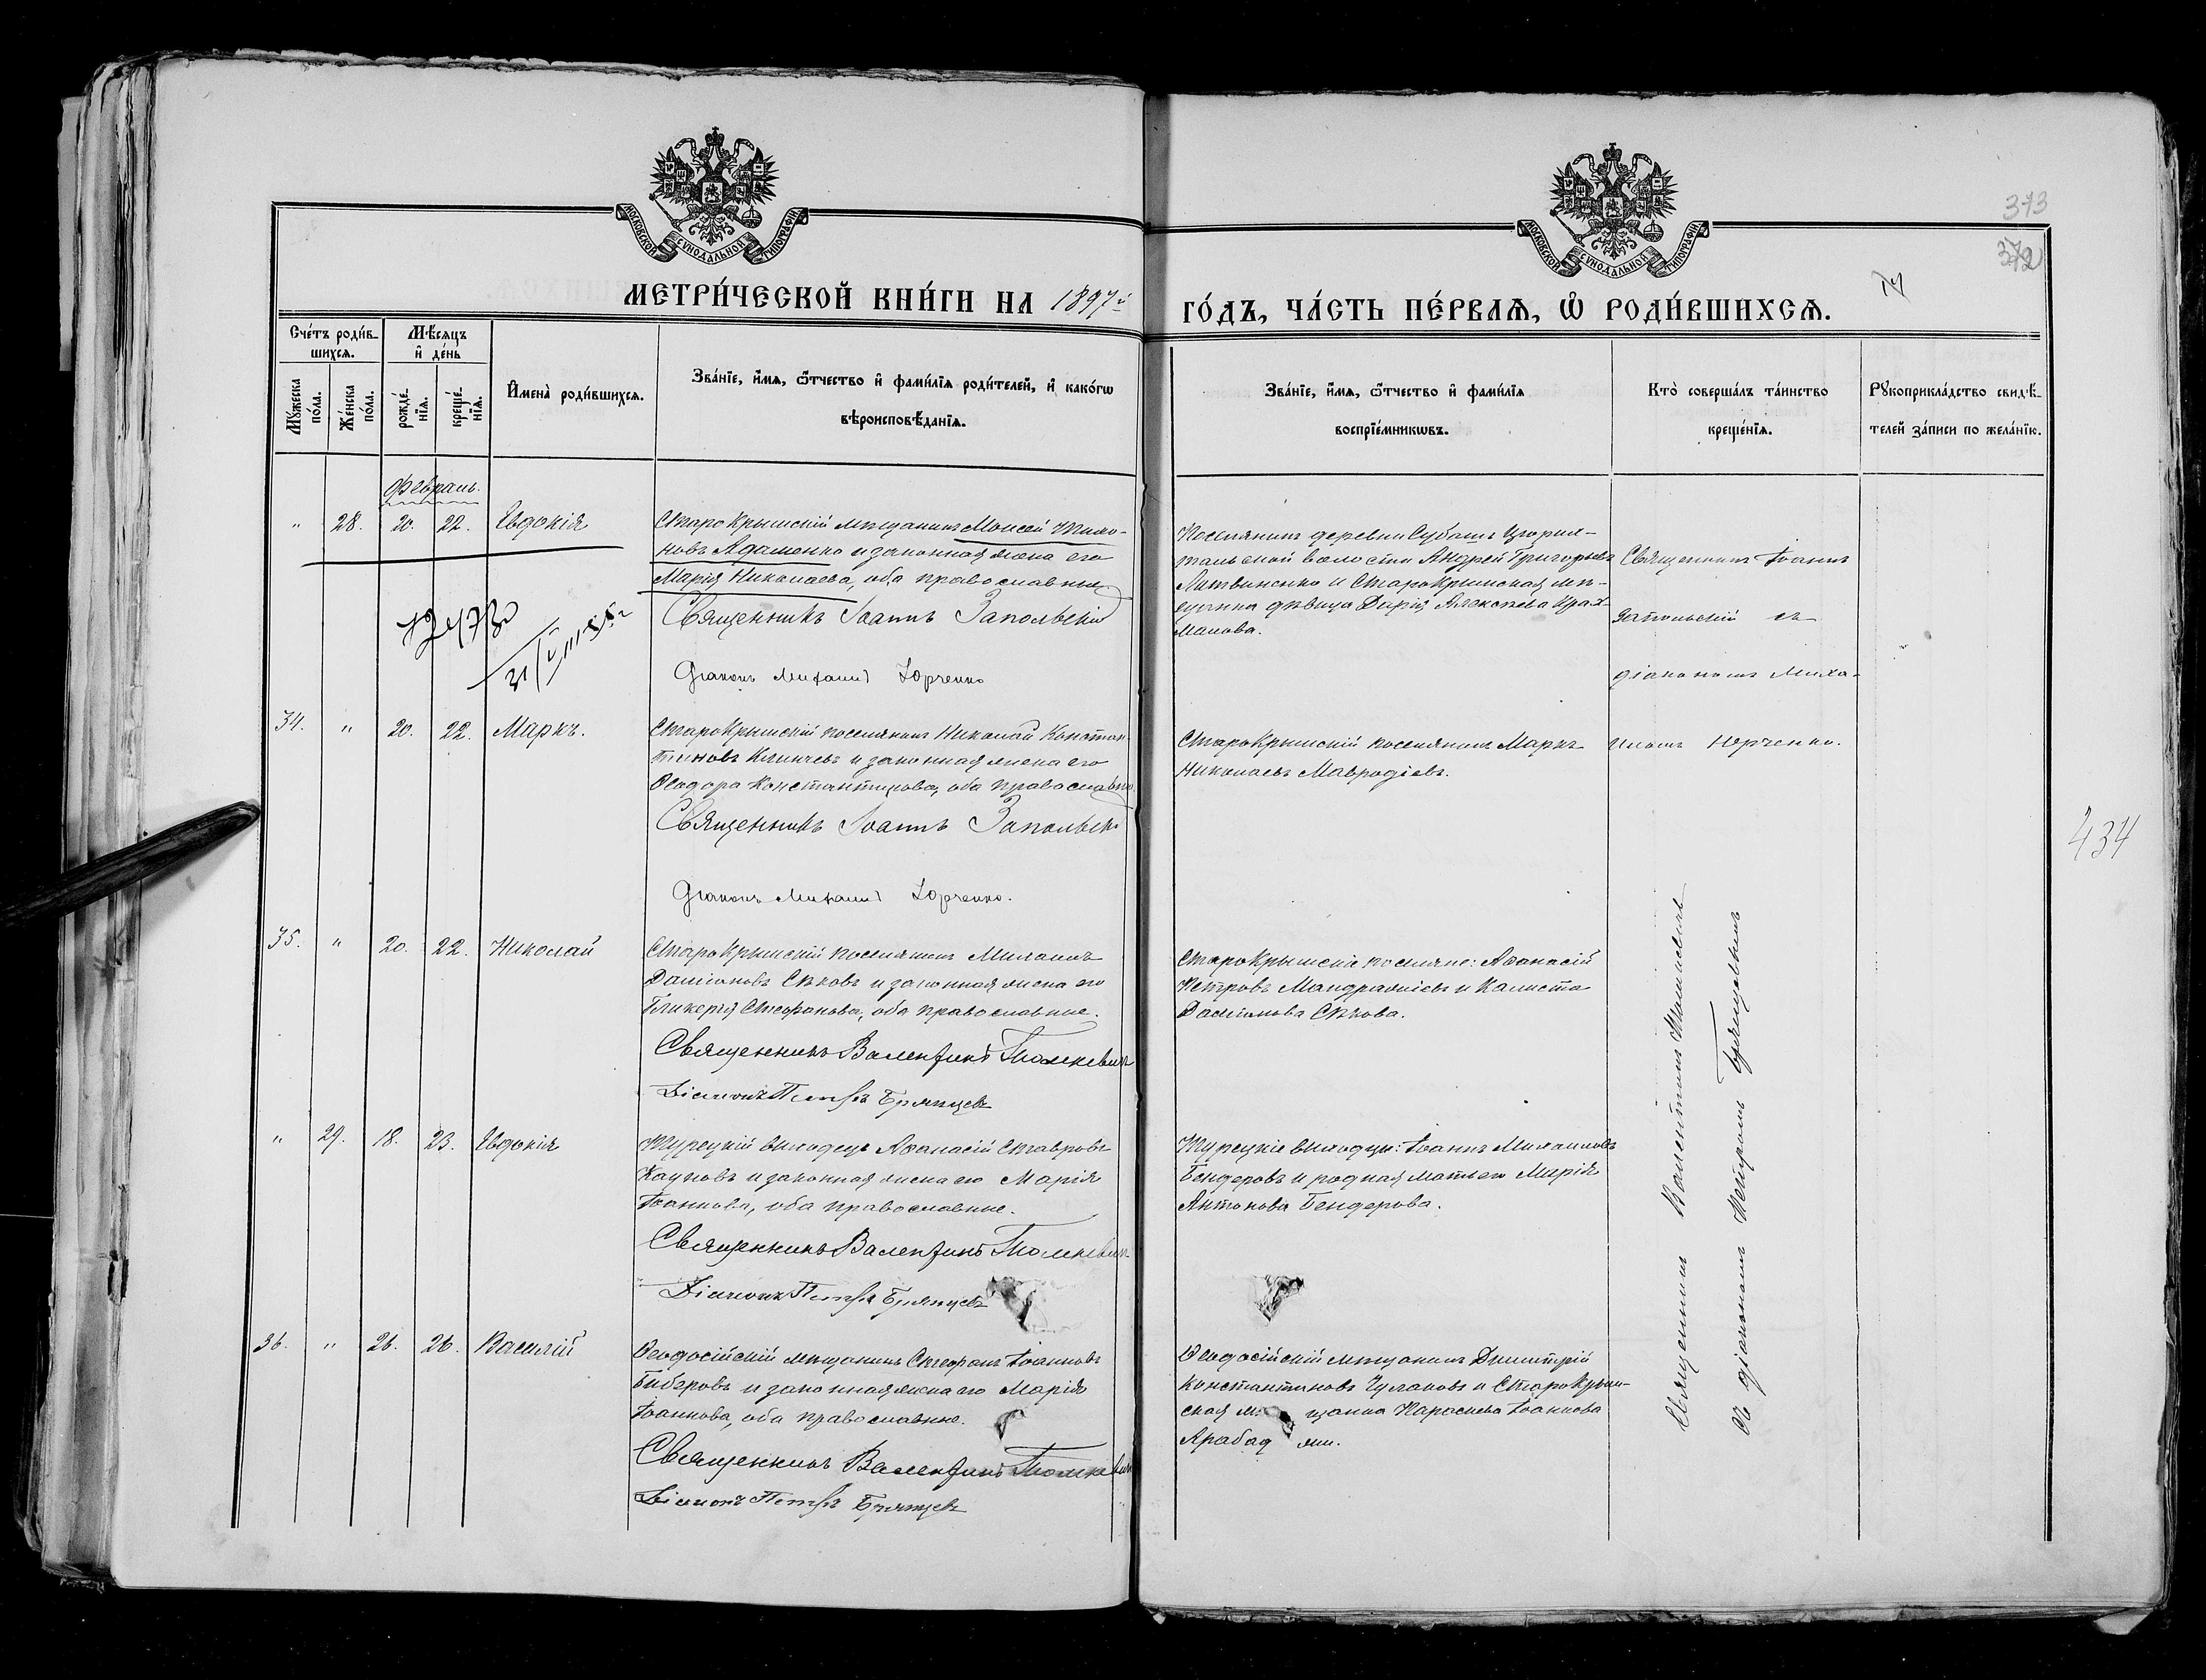 МОСКОВСКОЙ СУНОДАЛЬНОЙ ТИПОГРАФІИ
МОСКОВСКОЙ СУНОДАЛЬНОЙ ТИПОГРАФІИ
373
372
МЕТРИ́ЧЕСКОЙ КНИ́ГИ НА 1897й
ГО́ДЪ, ЧА́СТЬ ПЕ́РВАѦ, Ѡ҆ РОДИ́ВШИХСѦ.
Сче́тъ роди́в-
шихсѧ.
Мꙋжеска
по́ла.
Же́нска
по́ла.
Мѣ́сѧцъ
и҆ де́нь
рожде́-
нїѧ.
креще́-
нїѧ.
И҆мена̀ роди́вшихсѧ.
Зва́нїе, и҆́мѧ, ѻ҆́тчество и҆ фами́лїѧ роди́телей, и҆ како́гѡ
вѣроисповѣ́данїѧ.
Зва́нїе, и҆́мѧ, ѻ҆́тчество и҆ фами́лїѧ
воспрїе́мникѡвъ.
Кто̀ соверша́лъ та́инство
креще́нїѧ.
Рꙋкоприкла́дство свидѣ́-
телей за́писи по жела́нїю.
Февраль.
" 28. 20. 22. Евдокія
Старо Крымскій мѣщанинъ Моисей Тимо-
новъ Адаменко и законная жена его
Марія Николаева, оба православные
Священникъ Іоаннъ Запольскій
Діаконъ Михаилъ Юрченко
Поселянинъ деревни Субашъ Цюрих-
тальской волости Андрей Григорьевъ
Литвиненко и Старокрымская мѣ-
щанка дѣвица Дарія Алексѣева Крах-
малова.
Священникъ Іоаннъ
Запольскій съ
діакономъ Миха-
иломъ Юрченко.
34. " 20. 22. Маркъ.
Старокрымскій поселянинъ Николай Констан-
тиновъ Клинчевъ и законная жена его
Ѳеодора Константинова, оба православные
Священникъ Іоаннъ Запольскі
Діаконъ Михаилъ Юрченко.
Старокрымскій поселянинъ Маркъ
Николаевъ Мавродіевъ.
434
35. " 20. 22. Николай
Старокрымскій поселянинъ Михаилъ
Даміановъ Сѣковъ и законная жена его
Гликерія Стефанова, оба православные.
Священникъ Валентинъ Томкевичъ
Діаконъ Петръ Брянцевъ
Старокрымскіе поселяне: Аѳанасій
Петровъ Мандражіевъ и Калиста
Даміанова Сѣкова.
" 29. 18. 23. Евдокія
Турецкій выходецъ Аѳанасій Ставровъ
Кауновъ и законная жена его Марія
Іоаннова, оба православные.
Священникъ Валентинъ Томкевичъ
Діаконъ Петръ Брянцевъ
Турецкіе выходцы: Іоаннъ Михаиловъ
Бендеровъ и родная мать его Марія
Антонова Бендерова.
36. " 26. 26. Василій
Ѳеодосійскій мѣщанинъ Стефанъ Іоанновъ
Биберовъ и законная жена его Марія
Іоаннова, оба православные.
Священникъ Валентинъ Томкевичъ
Діаконъ Петръ Брянцевъ
Ѳеодосійскій мѣщанинъ Димитрій
Константиновъ Чулаковъ и Старокрым-
ская мѣщанка Параскева Іоаннова
Арабад жи.
Священникъ Валентинъ Томкевичъ
съ діакономъ Петромъ Брянцевымъ